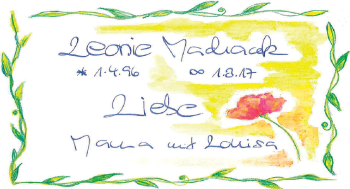 Leonie
* 1.4.96 ∞ 1.8.17
Liebe
Mama und Louisa